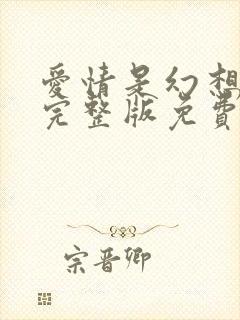 愛情是幻想
完整版免費
宗晋卿